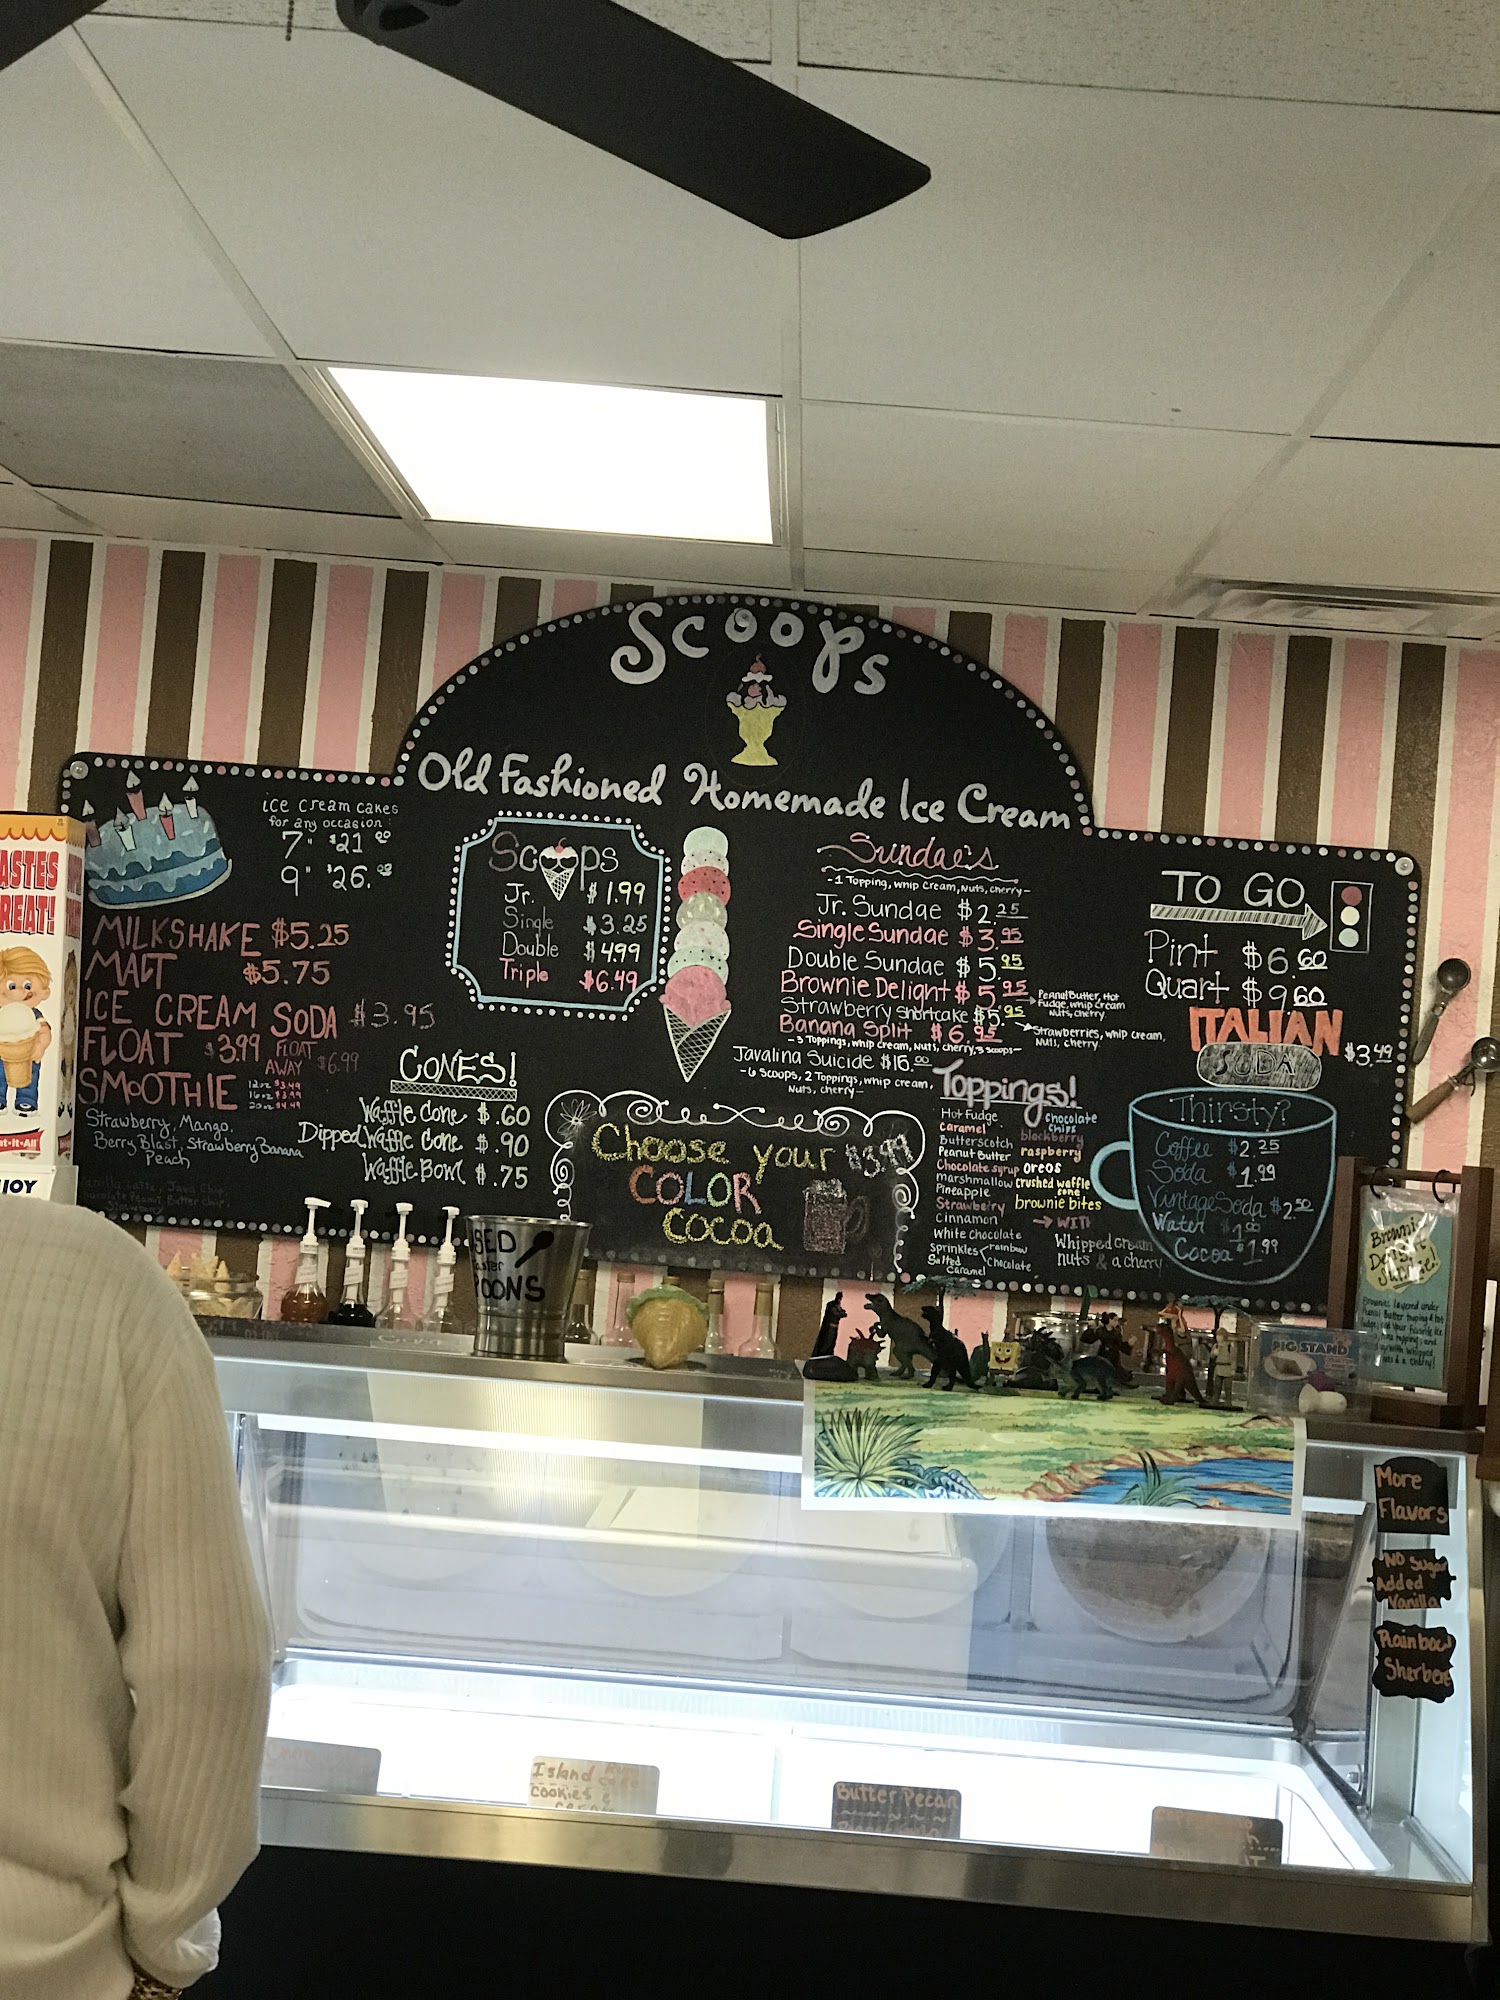 Scoops
Old Fashioned Homemade Ice Cream
ice cream cakes
for any occasion:
7" $21.00
9" $26.
MILKSHAKE $5.25
MALT $5.75
ICE CREAM SODA $3.95
FLOAT $3.99 FLOAT AWAY $6.99
SMOOTHIE
12oz $3.49
16oz $3.99
20oz $4.49
Strawberry, Mango,
Berry Blast, Strawberry Banana
Peach
Scoops
Jr. $1.99
Single $3.25
Double $4.99
Triple $6.49
CONES!
Waffle Cone $.60
Dipped Waffle Cone $.90
Waffle Bowl $.75
Choose your $3.99
COLOR
COCOA
Sundae's
-1 Topping, whip cream, Nuts, cherry-
Jr. Sundae $2.25
Single Sundae $3.95
Double Sundae $5.95
Brownie Delight $5.95
Peanut Butter, Hot
Fudge, whip cream
Nuts, cherry
Strawberry shortcake $5.95
Strawberries, whip cream,
Nuts, cherry
Banana Split $6.95
-3 Toppings, whip cream, Nuts, cherry, 3 scoops-
Javalina Suicide $16.00
-6 scoops, 2 Toppings, whip cream,
Nuts, cherry-
Toppings!
Hot Fudge
Caramel
Butterscotch
Peanut Butter
Chocolate syrup
marshmallow
Pineapple
Strawberry
Cinnamon
White chocolate
Sprinkles rainbow
chocolate
Salted
Caramel
chocolate
chips
blackberry
raspberry
OREOS
crushed waffle
cone
brownie bites
WITH
Whipped cream
nuts & a cherry
TO GO
Pint $6.60
Quart $9.60
ITALIAN
SODA $3.49
Thirsty?
Coffee $2.25
Soda $1.99
Vintage Soda $2.50
Water $1.00
Cocoa $1.99
Brownie
Delight
Brownies layered under
Peanut Butter topping & hot
PIG STAND
More
Flavors
NO Sugar
Added
Vanilla
Rainbow
Sherbet
Island
cookies &
Butter Pecan